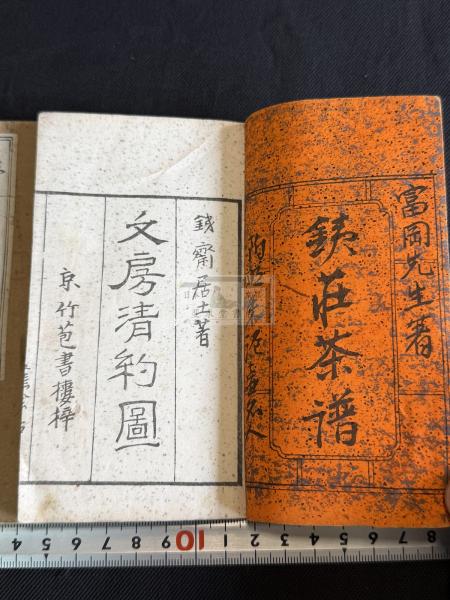 富岡先生著
銕荘茶譜
銕齋居士著
文房清約圖
京竹苞書樓梓
8 7 6 5 4 3 2 1 10 9 8 7 6 5 4 3 2